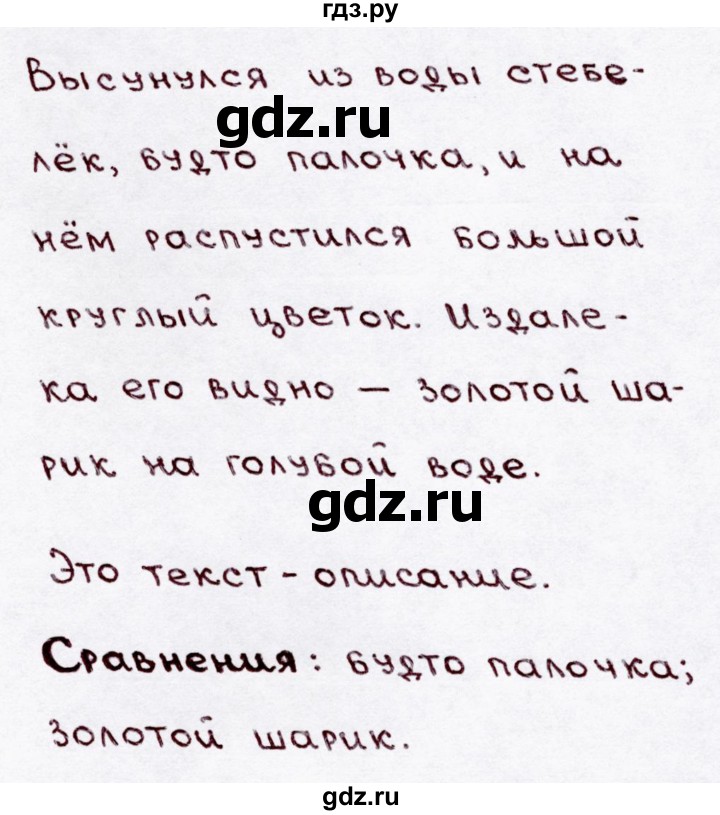 гдз.ру
Высунулся из воды стебе-
gdz.ru
лёк, будто палочка, и на
нём распустился большой
круглый цветок. Издале-
ка его видно — золотой ша-
рик на голубой воде.
gdz.ru
Это текст - описание.
Сравнения: будто палочка;
золотой шарик.
gdz.ru